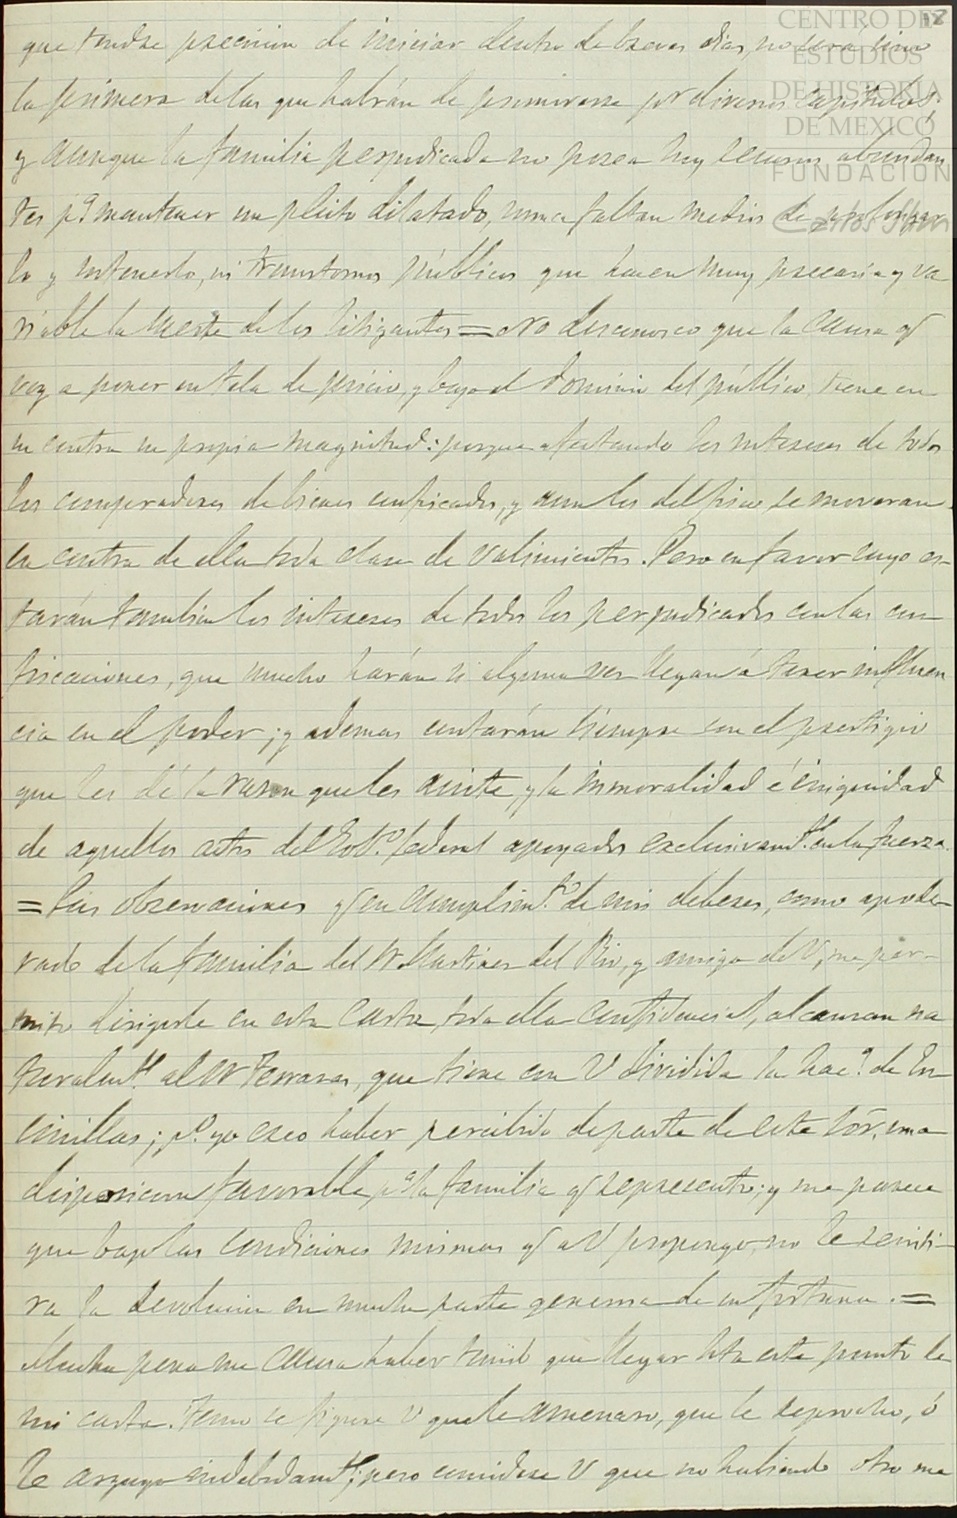 18
CENTRO DE
ESTUDIOS
DE HISTORIA
DE MEXICO
FUNDACIÓN
Carlos Slim
que tendré precision de iniciar dentro de breves dias, no será sino
la primera de las que habrán de promoverse por diversos capitulos;
y aunque la familia perjudicada no posea hoy recursos abundan
tes pª mantener un pleito dilatado, nunca faltan medios de prolongar
lo y sostenerlo, ni trastornos públicos que hacen muy precaria y va
riable la suerte de los litigantes = No desconosco que la causa q
voy a poner en tela de juicio, y bajo el dominio del público, tiene en
su contra su propia magnitud: porque afectando los intereses de todos
los compradores de bienes confiscados, y aun los del fisco se moveran
en contra de ella toda clase de valimientos. Pero en favor suyo es-
tarán tambien los intereses de todos los perjudicados con las con
fiscaciones, que mucho harán si alguna vez llegan á tener influen
cia en el poder; y ademas contarán siempre con el prestigio
que les dé la razon que les asiste, y la inmoralidad é iniquidad
de aquellos actos del Gobº federal apoyados exclusivamte en la fuerza.
= Las observaciones q en cumplimto de mis deberes, como apode-
rado de la familia del Sr Martinez del Rio, y amigo de V, me per-
mito dirigirle en esta carta, toda ella confidencial, alcanzan na
turalmte al Sr Terrazas, que tiene con V dividida la hacª de En
cinillas; pº yo creo haber percibido de parte de este Sór. una
disposicion favorable pª la familia q represento; y me parece
que bajo las condiciones mismas q a V propongo, no le resisti-
ra la devolucion en mucha parte generosa de su fortuna. =
Mucha pena me causa haber tenido que llegar hta este punto de
mi carta. Temo se figure V que le amenazo, que le reprocho, ó
le arguyo indebidamte; pero considere V que no habiendo otro me